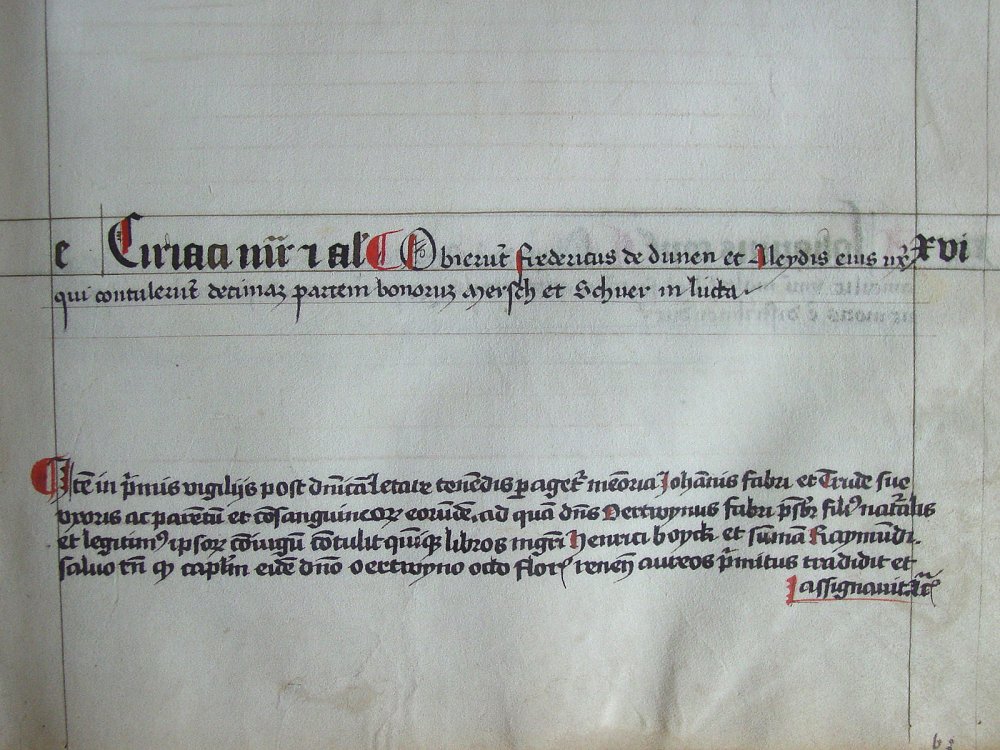 e Ciriaci mr̄ ⁊ al' Obierūt fredericus de dunen et Aleydis eius ux̄ xvi
qui contulerūt decimaz partem bonoruz mersch et Schuer in lucta
Itē in p̄mis vigilijs post dn̄icā letare tenendis paget᷑ mēoria Johān̄is fabri et Trude sue
vxoris ac parentū et cōsanguineoꝝ eorundē, ad quā dn̄s Oertwynus fabri p̄sbr̄ filiꝰ nat̄alis
et legitimꝰ ipsoꝝ cōiugū cōtulit quīqꝫ libros mgr̄i Henrici boyck et sūmā Raymundi.
saluo tn̄ ꝙ capl'm eidē dn̄o oertwyno octo flor̄ renēn̄ aureos p̄mitus tradidit et
assignauit